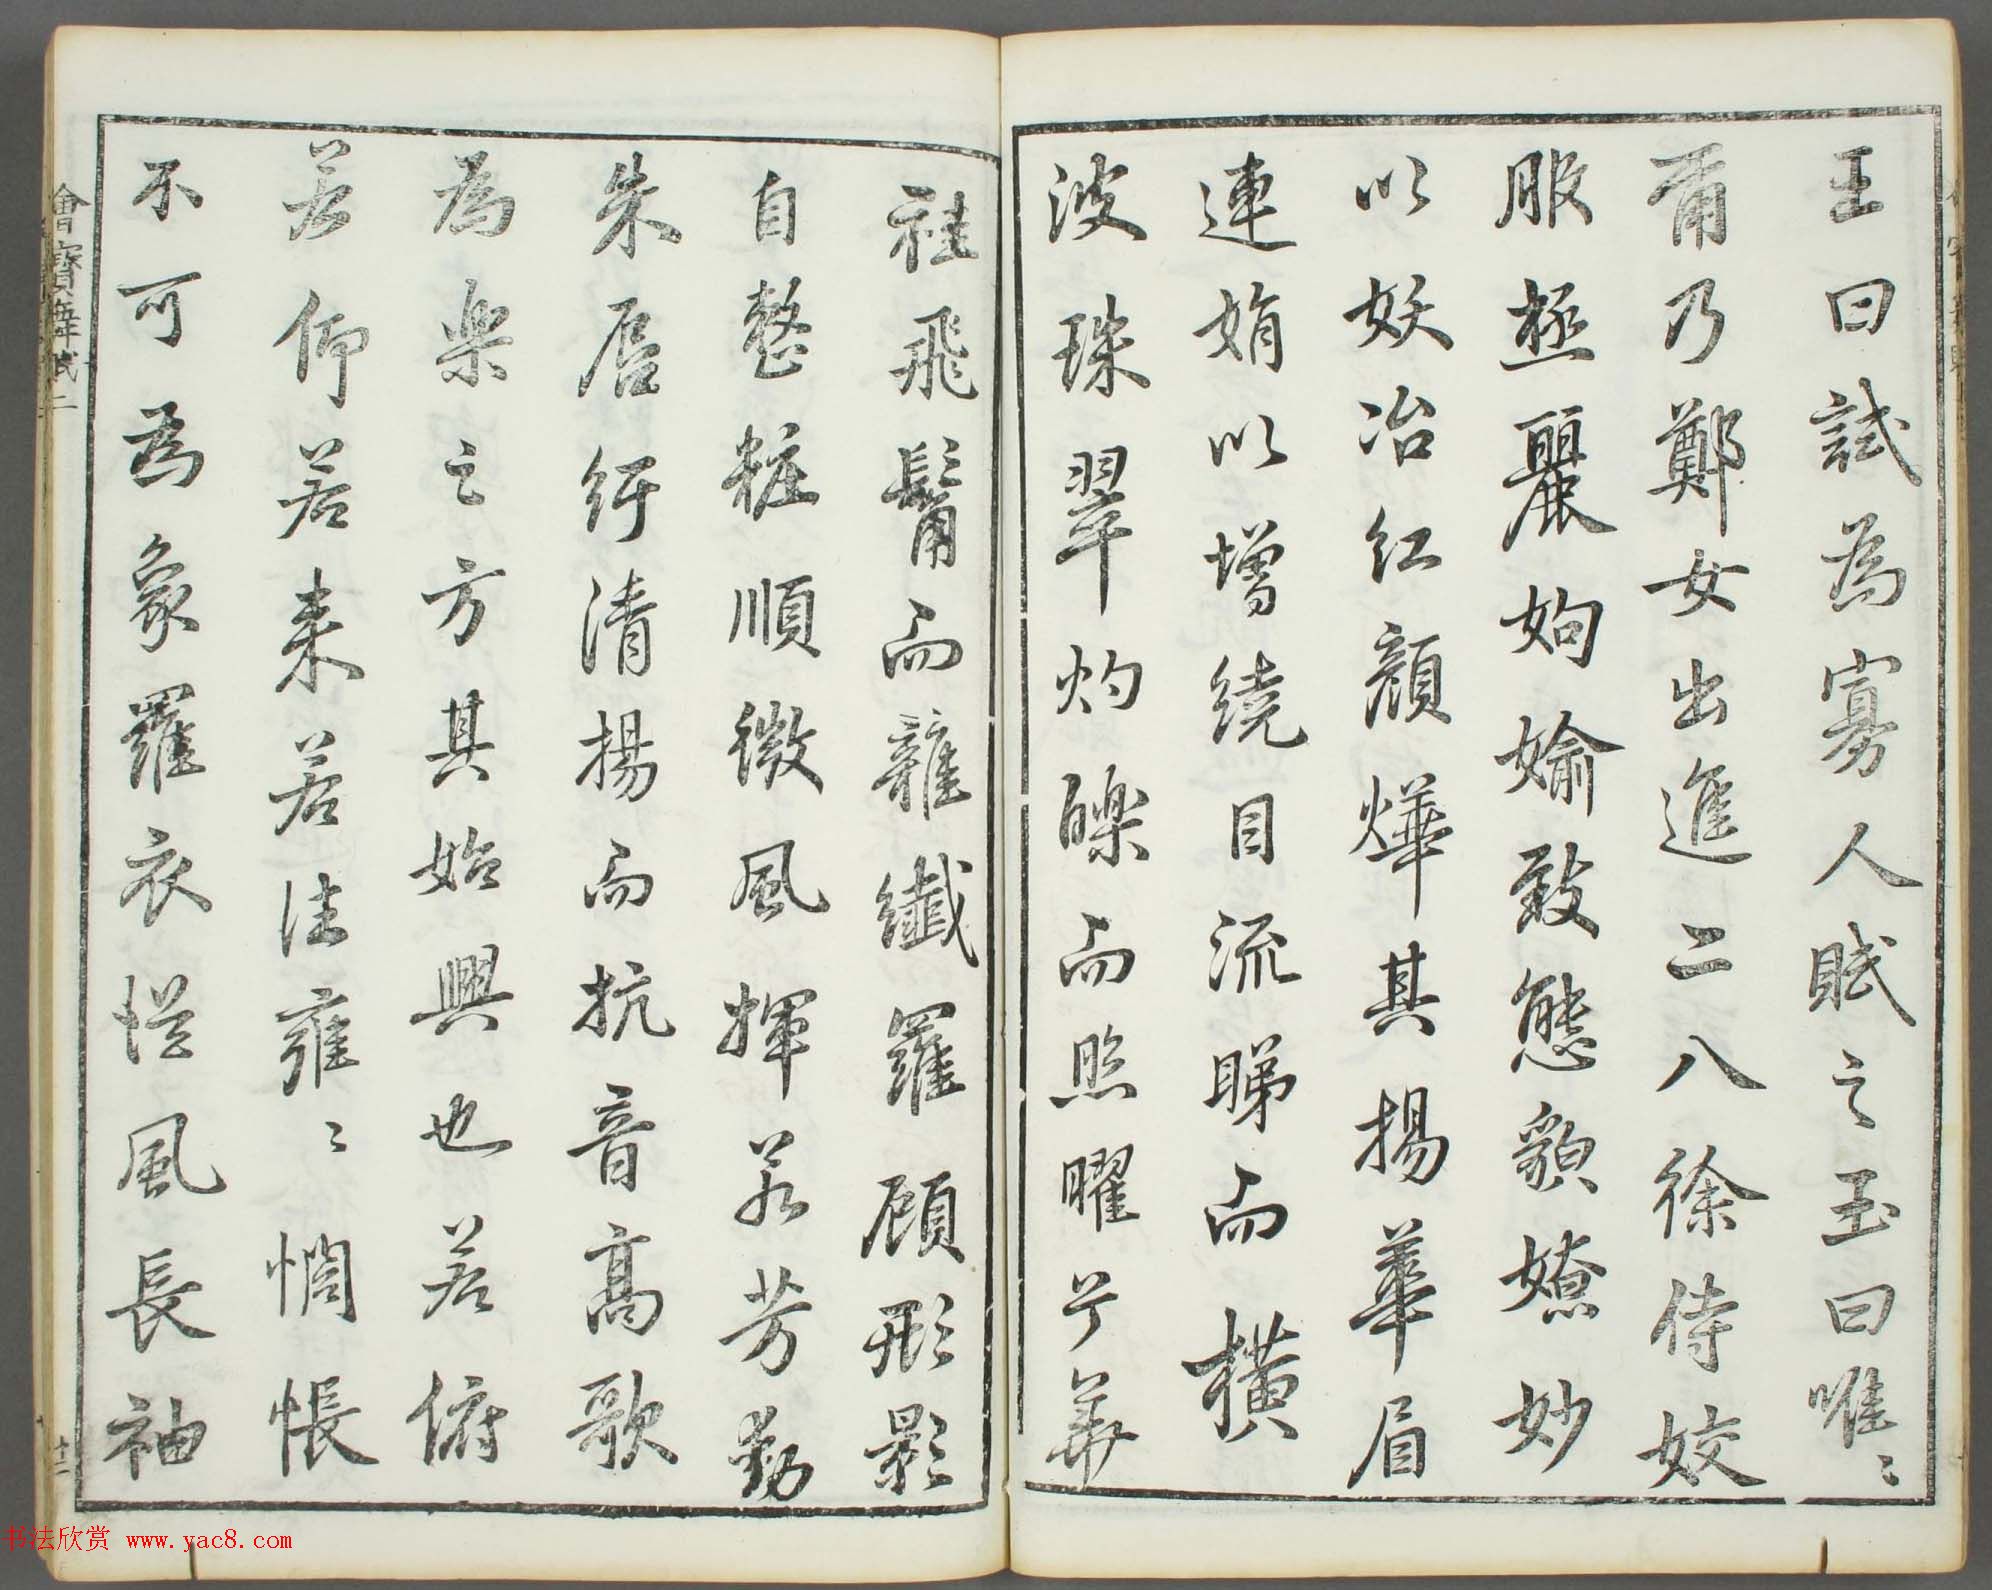 王曰試為寡人賦之玉曰唯〻
爾乃鄭女出進二八徐侍姣
服極麗姁媮致態貌嫽妙
以妖冶紅顏燁其揚華眉
連娟以增繞目流睇而橫
波珠翠灼皪而照曜兮華
袿飛髾而雜纖羅顧形影
自整粧順微風揮若芳動
朱唇紆清揚而抗音高歌
為樂之方其始興也若俯
若仰若來若往雍〻惆悵
不可為象羅衣從風長袖
會寶舞賦 二
十二
书法欣赏 www.yac8.com